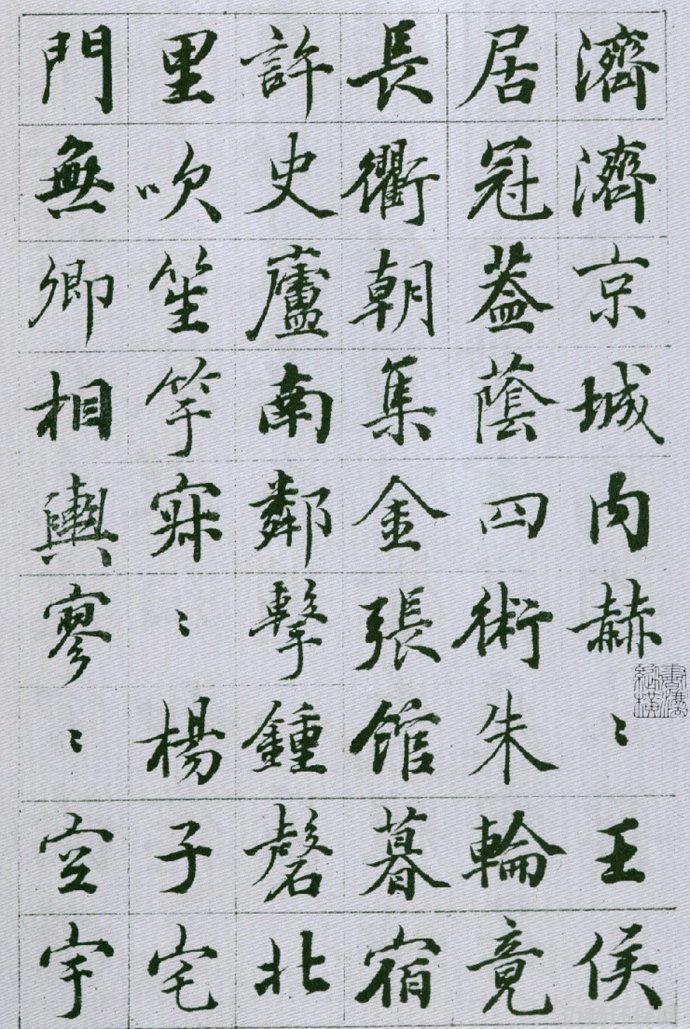 濟濟京城内赫〻王侯
居冠蓋蔭四術朱輪竟
長衢朝集金張館暮宿
許史廬南鄰擊鍾磬北
里吹笙竽寂〻楊子宅
門無卿相輿寥〻空宇
書灋縱橫